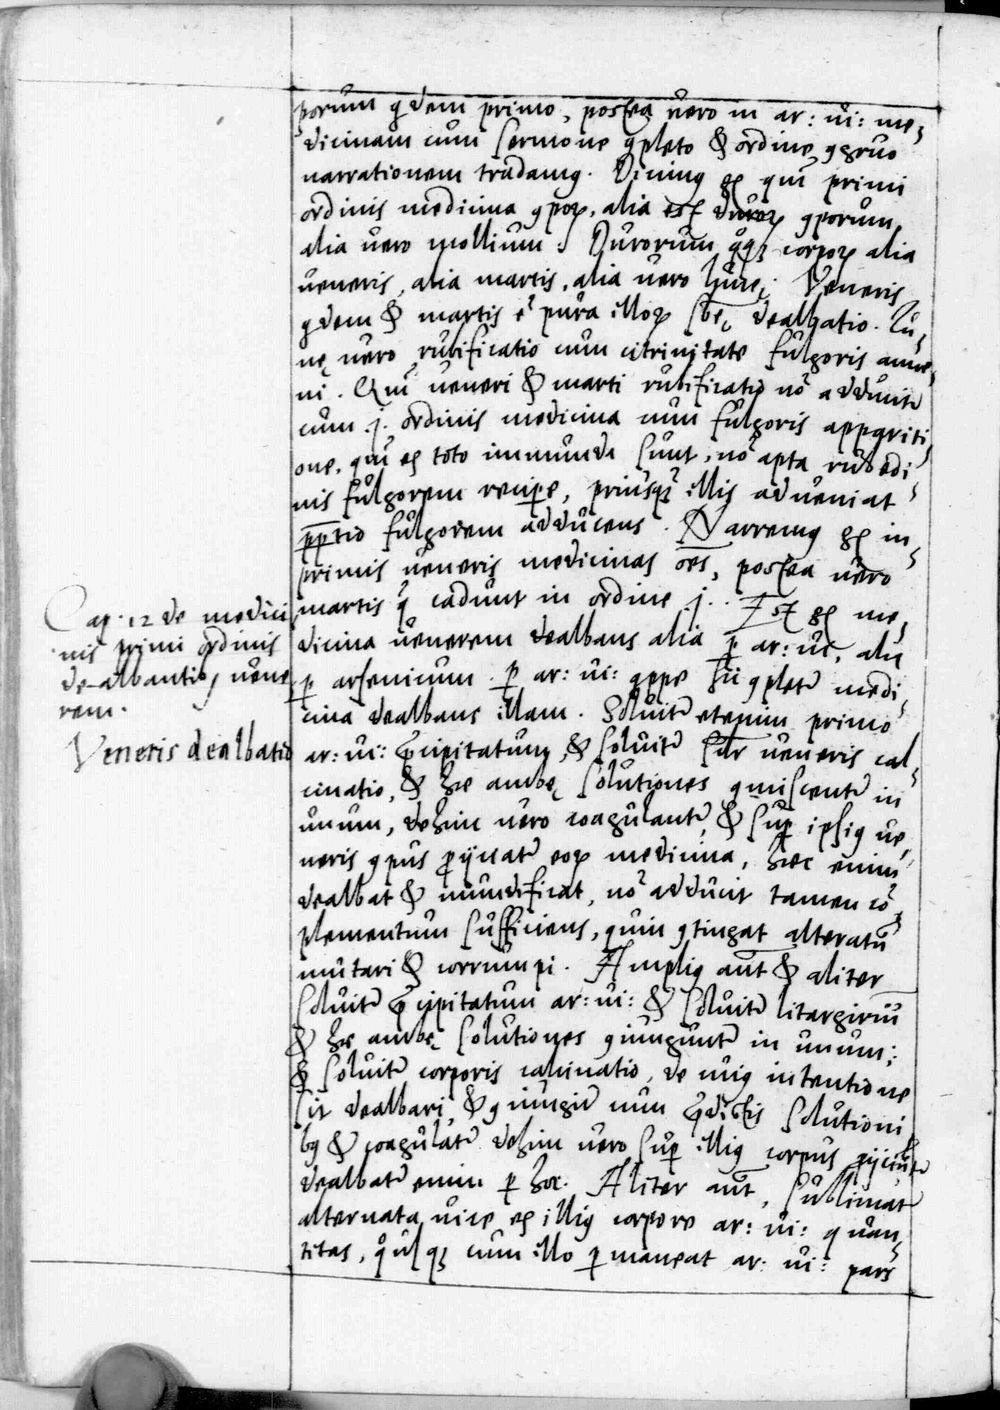 porum qdem primo, postea vero in ar: vi: me-
dicinam cum sermone ꝯpleto & ordine ꝯgruo
narrationem tradamꝰ. Dicimꝰ gͦ qm̄ primi
ordinis medicina ꝯpoꝝ, alia est duroꝝ ꝯporum,
alia vero mollium: Durorum qͦqꝫ corpoꝝ alia
veneris, alia martis, alia vero lune: Veneris
qdem & martis ē pura illoꝝ sbē dealbatio. Lu-
nę vero rubificatio cum citrinitate fulgoris ame-
ni. Qm̄ veneri & marti rubificatio nō adducit
cum .j. ordinis medicina cum fulgoris appariti-
one. qm̄ ex toto immundi sunt, nō apta rubedi-
nis fulgorem recipe, priusqꝫ illis adveniat
pp̄tio fulgorem adducens. Narremꝰ gͦ in-
primis veneris medicinas oēs, postea vero
martis q̄ cadunt in ordine .j. Est gͦ me-
dicina venerem dealbans alia ꝑ ar: vi, alia
ꝑ arsenicum. ꝑ ar: vi: qppe sic ꝯpletr medi-
cina dealbans illam. Solvitr etenim primo
ar: vi: p̄cipitatum, & solvitr silr veneris cal-
cinatio, & hę ambę solutiones ꝯmiscentr in
unum, dehinc vero coagulantr, & suꝑ ipsiꝰ ve-
neris ꝯpus proijcatr eoꝝ medicina, hęc enim
dealbat & mundificat, nō adducit tamen cō-
plementum sufficiens, quin ꝯtingat alteratū
mutari & corrumpi. Ampliꝰ aūt & aliter
solvitr p̄cipitatum ar: vi: & solvitr litargiriū
& hę ambę solutiones ꝯiungantr in unum:
& solvitr corporis calcinatio, de cuiꝰ intentione
sit dealbari, & ꝯiungitr cum p̄dictis solutioni-
bꝰ & coagulatr dehinc vero suꝑ illiꝰ corpus pijciatr
dealbatr enim ꝑ hoc. Aliter aūt, sublimatr
alternata vice ex illiꝰ corpore ar: vi: quan-
titas, qͦusqꝫ cum illo ꝑmaneat ar: vi: pars
Cap. 12 de medici
nis primi ordinis
dealbantibꝰ vene
rem.
Veneris dealbatio